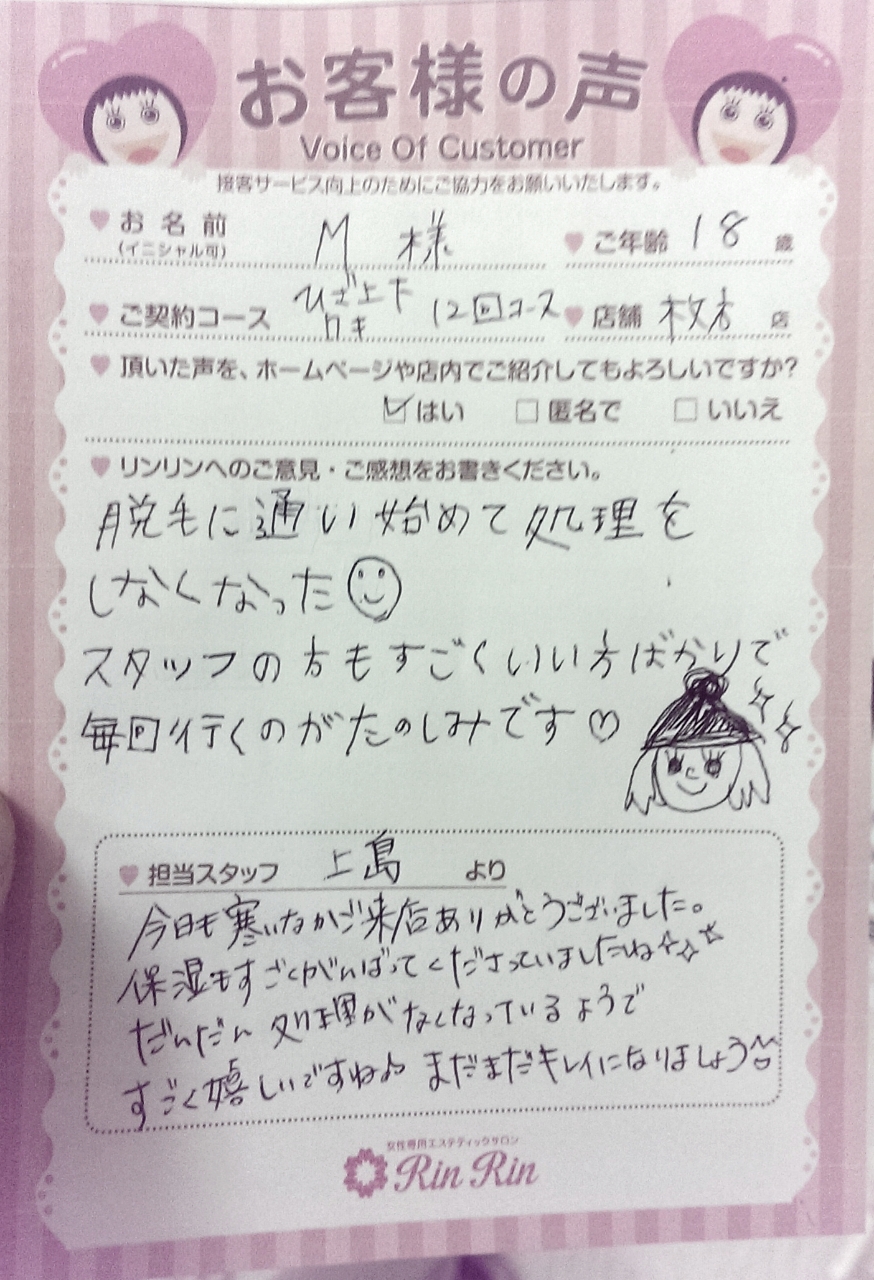 お客様の声
Voice Of Customer
接客サービス向上のためにご協力をお願いいたします。
お名前 M 様 ご年齢 18 歳
(イニシャル可)
ご契約コース ひざ上下 12回コース 店舗 枚方 店
ワキ
頂いた声を、ホームページや店内でご紹介してもよろしいですか?
はい 匿名で いいえ
リンリンへのご意見・ご感想をお書きください。
脱毛に通い始めて処理を
しなくなった
スタッフの方もすごくいい方ばかりで
毎回行くのがたのしみです♡
担当スタッフ 上島 より
今日も寒いなかご来店ありがとうございました。
保湿もすごくがんばってくださっていましたね
だんだん処理がなくなっているようで
すごく嬉しいですね♪ まだまだキレイになりましょう
女性専用エステティックサロン
Rin Rin